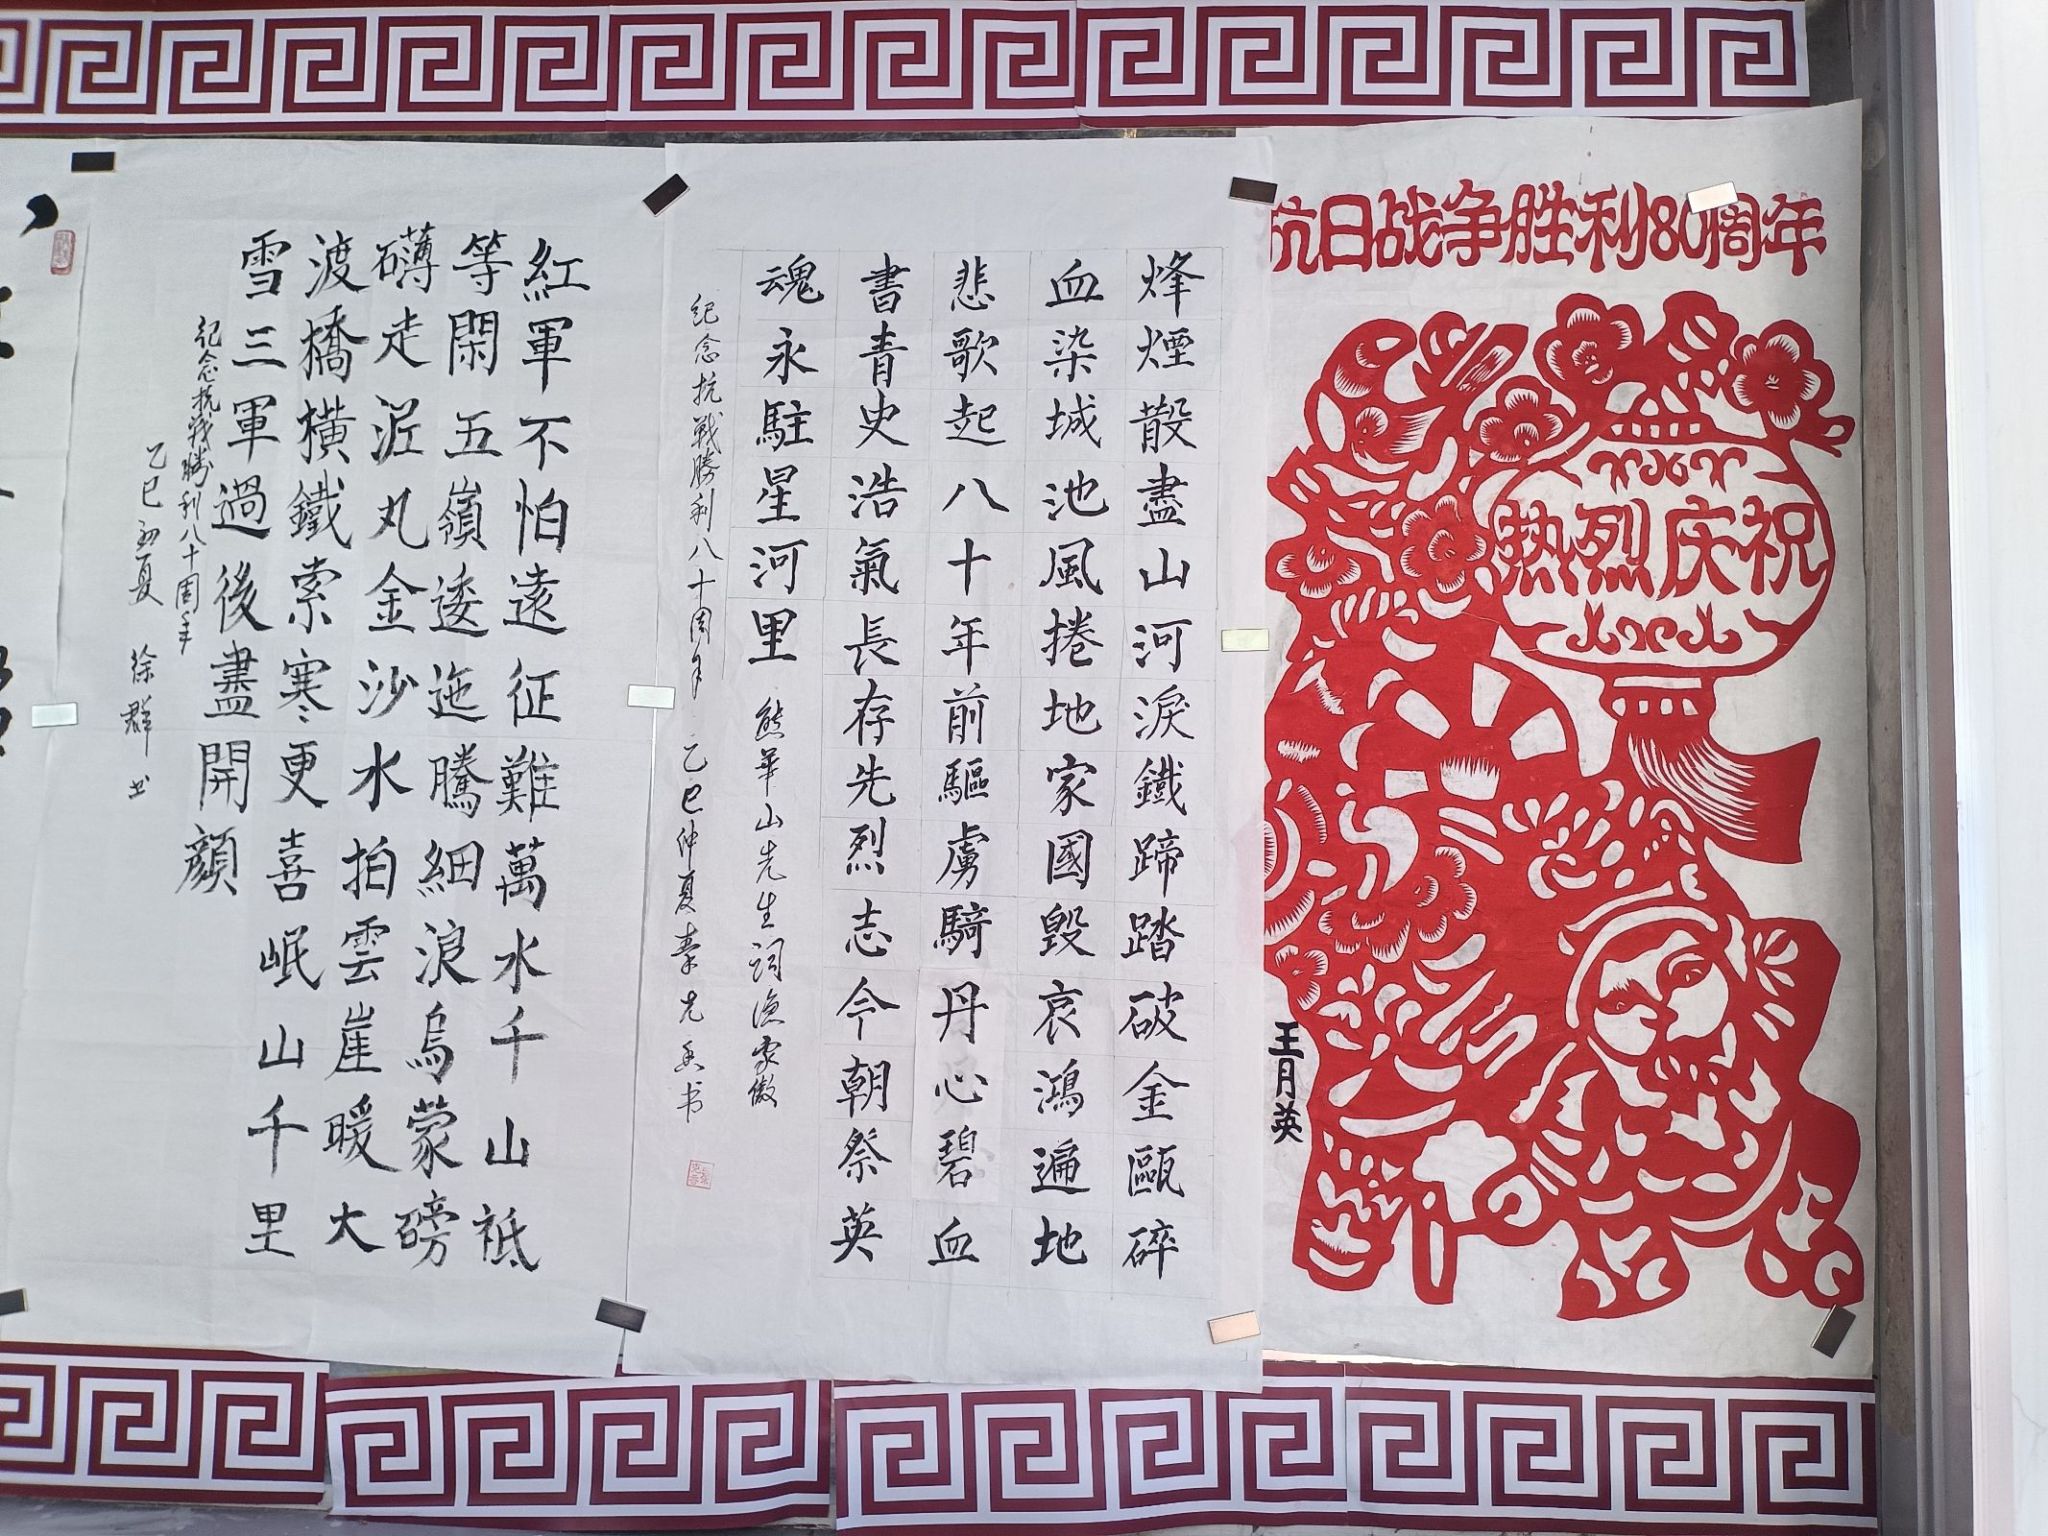 抗日战争胜利80周年
热烈庆祝
王月英
烽煙散盡山河淚鐵蹄踏破金甌碎
血染城池風捲地家國毀哀鴻遍地
悲歌起八十年前驅虜騎丹心碧血
書青史浩氣長存先烈志今朝祭英
魂永駐星河里 熊華山先生词漁家傲
紀念抗戰勝利八十周年 乙巳仲夏秦书
紅軍不怕遠征難萬水千山祗
等閑五嶺逶迤騰細浪烏蒙磅
礴走泥丸金沙水拍雲崖暖大
渡橋橫鐵索寒更喜岷山千里
雪三軍過後盡開顏
紀念抗戰勝利八十周年
乙巳初夏 徐群书